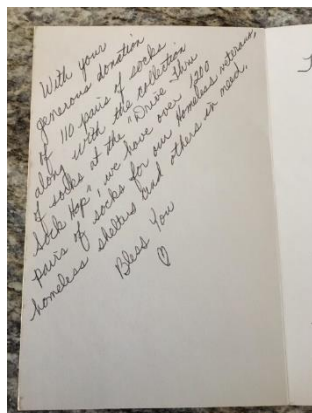 With your
generous donation
of 110 pairs of socks
along with the collection
of socks at the "Drive Thru
Sock Hop", we have over 1200
pairs of socks for our Homeless veterans,
homeless shelters and others in need.
Bless You